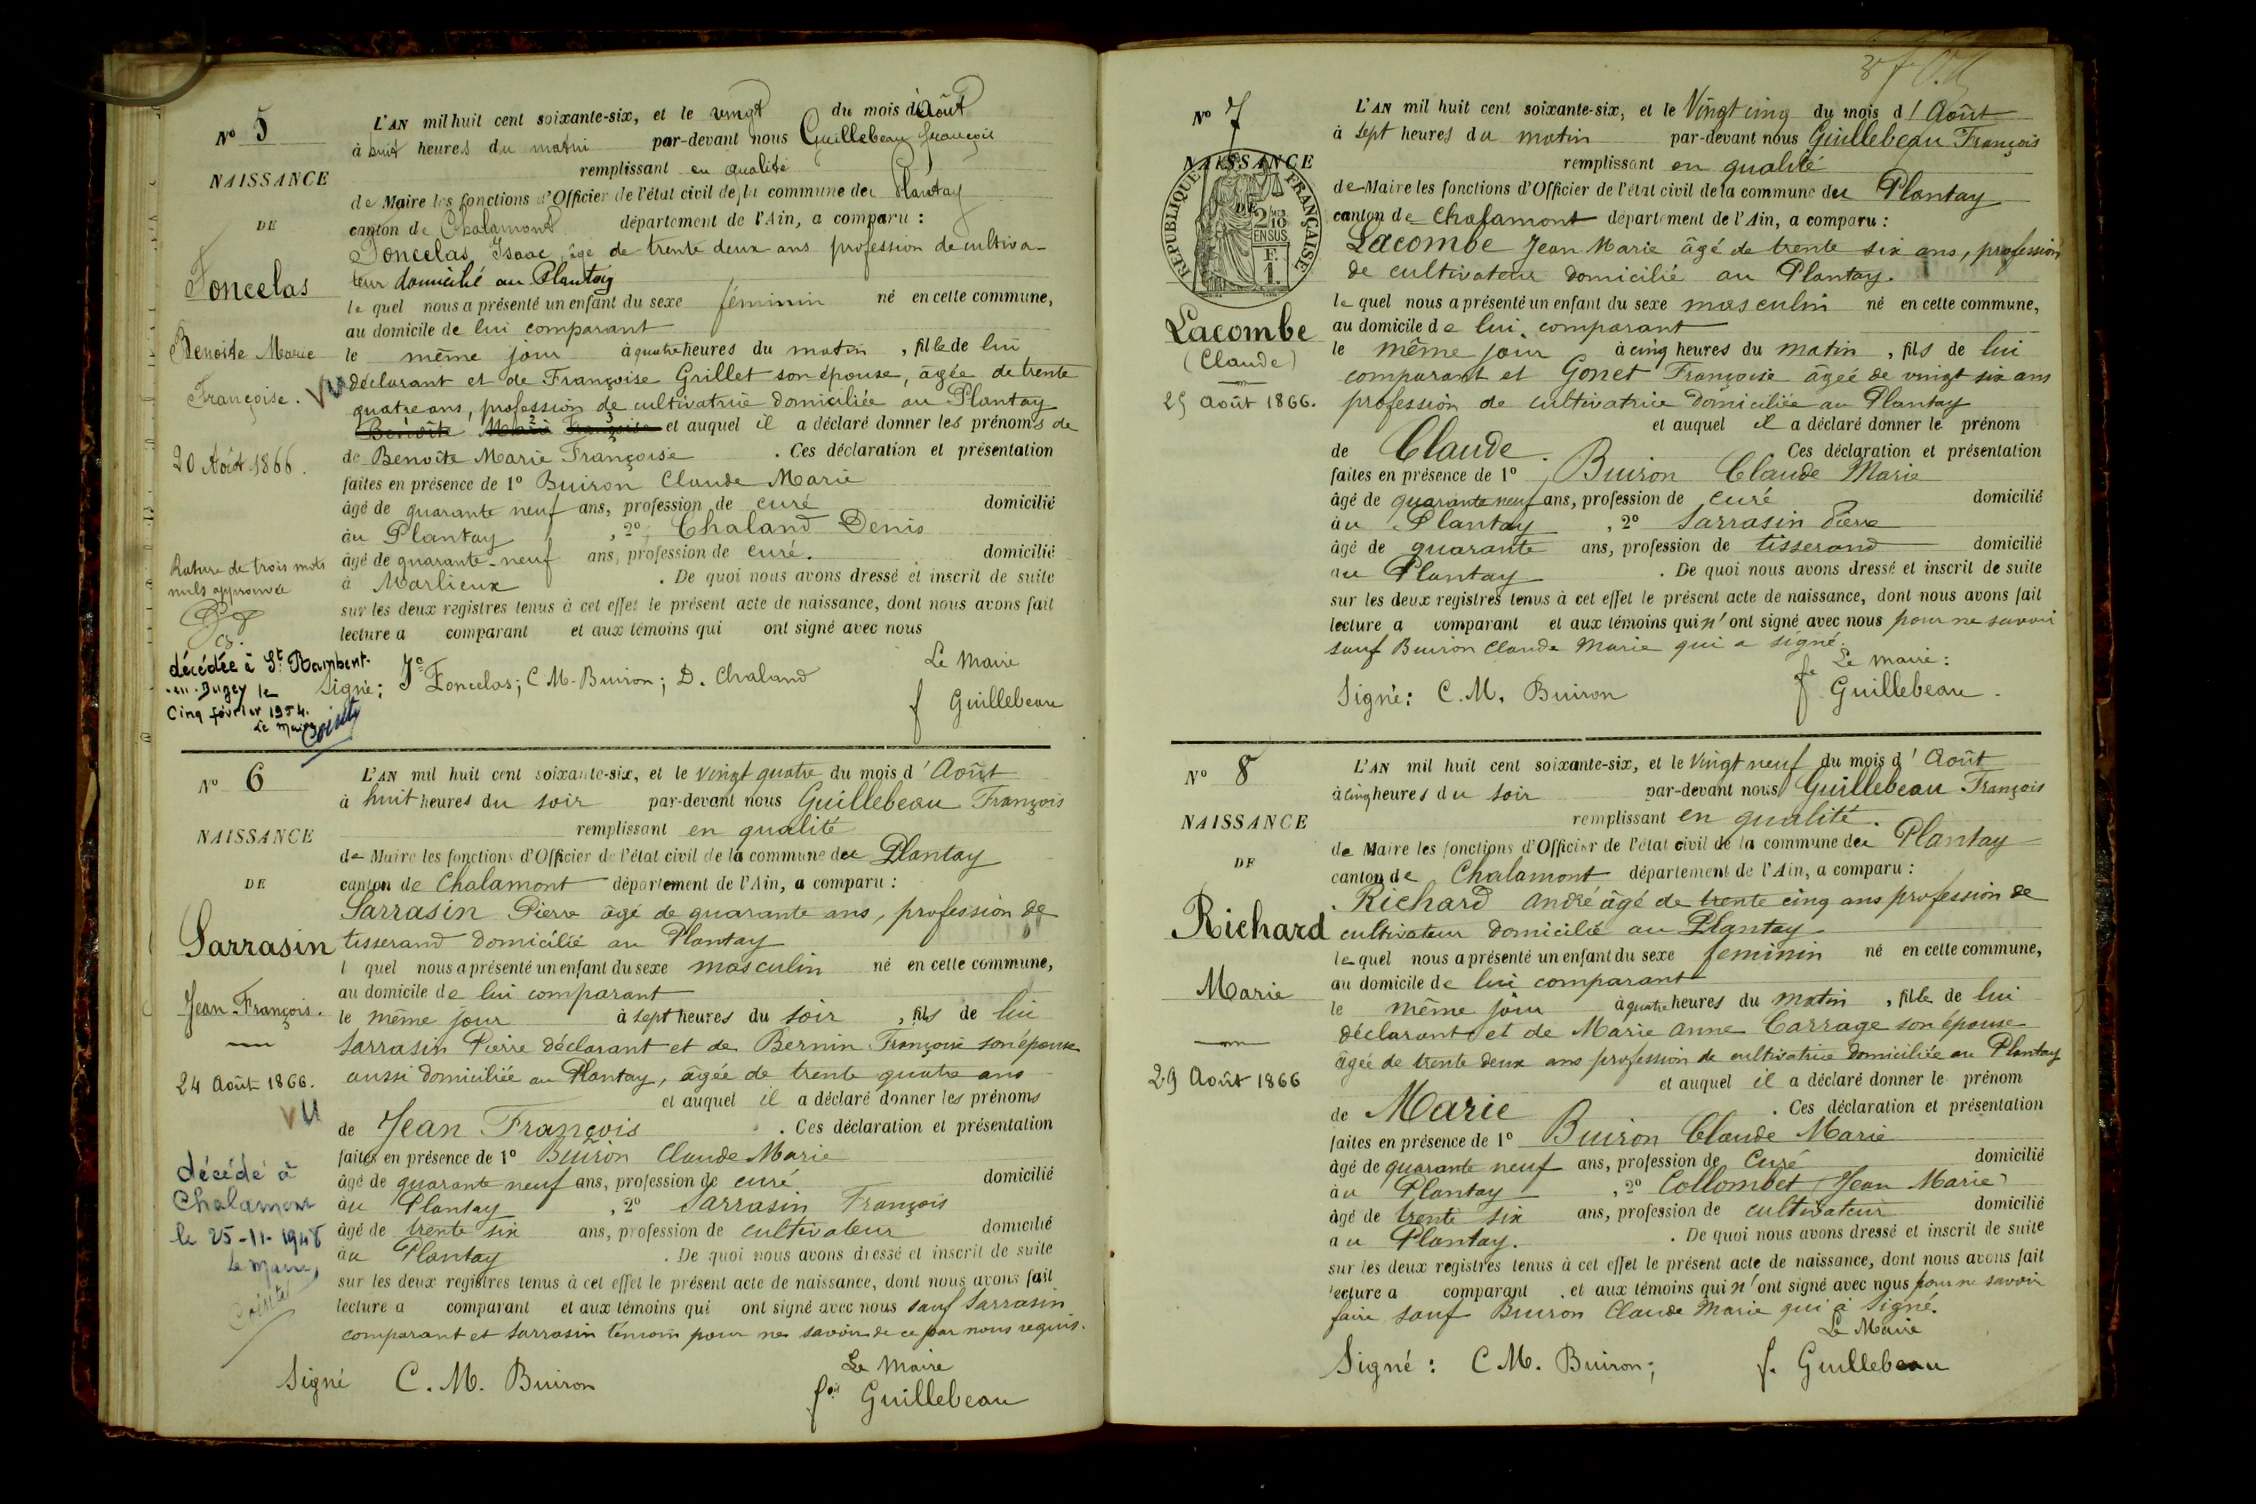 N° 5
NAISSANCE
DE
Foncelas
Benoite Marie
Françoise.
Vu
20 Août 1866.
Rature de trois mots
nuls approuvée
décédée à St Rambert-
-en-Bugey le
Cinq février 1954.
Le Maire
L'AN mil huit cent soixante-six, et le vingt du mois d'Août
à huit heures du matin par-devant nous Guillebeau François
remplissant en qualité
de Maire les fonctions d'Officier de l'état civil de la commune du Plantay
canton de Chalamont département de l'Ain, a comparu :
Foncelas Isaac, âgé de trente deux ans profession de cultiva-
teur domicilié au Plantay
lequel nous a présenté un enfant du sexe féminin né en cette commune,
au domicile de lui comparant
le même jour à quatre heures du matin, fille de lui
déclarant et de Françoise Grillet son épouse, âgée de trente
quatre ans, profession de cultivatrice domiciliée au Plantay
Benoîte Marie Françoise et auquel il a déclaré donner les prénoms de
de Benoite Marie Françoise. Ces déclaration et présentation
faites en présence de 1° Buiron Claude Marie
âgé de quarante neuf ans, profession de curé domicilié
au Plantay, 2° Chaland Denis
âgé de quarante-neuf ans, profession de curé. domicilié
à Marlieux. De quoi nous avons dressé et inscrit de suite
sur les deux registres tenus à cet effet le présent acte de naissance, dont nous avons fait
lecture a comparant et aux témoins qui ont signé avec nous
Le Maire
Signé; Jc Foncelas; C M. Buiron; D. Chaland
f Guillebeau
N° 6
NAISSANCE
DE
Sarrasin
Jean-François.
24 Août 1866.
VU
décédé à
Chalamont
le 25-11-1948
Le Maire,
L'AN mil huit cent soixante-six, et le vingt quatre du mois d'Août
à huit heures du soir par-devant nous Guillebeau François
remplissant en qualité
de Maire les fonctions d'Officier de l'état civil de la commune du Plantay
canton de Chalamont département de l'Ain, a comparu :
Sarrasin Pierre âgé de quarante ans, profession de
tisserand domicilié au Plantay
l quel nous a présenté un enfant du sexe masculin né en cette commune,
au domicile de lui comparant
le même jour à sept heures du soir, fils de lui
Sarrasin Pierre déclarant et de Bernin Françoise son épouse
aussi domiciliée au Plantay, âgée de trente quatre ans
et auquel il a déclaré donner les prénoms
de Jean François. Ces déclaration et présentation
faites en présence de 1° Buiron Claude Marie
âgé de quarante neuf ans, profession de curé domicilié
au Plantay, 2° Sarrasin François
âgé de trente six ans, profession de cultivateur domicilié
au Plantay. De quoi nous avons dressé et inscrit de suite
sur les deux registres tenus à cet effet le présent acte de naissance, dont nous avons fait
lecture a comparant et aux témoins qui ont signé avec nous sauf Sarrasin
comparant et Sarrasin témoin pour ne savoir de ce par nous requis.
Le Maire
Signé C. M. Buiron
fois Guillebeau
N° 7
NAISSANCE
DE
RÉPUBLIQUE FRANÇAISE
2/10 EN SUS
F. 1.
Lacombe
(Claude)
25 Août 1866.
L'AN mil huit cent soixante-six, et le Vingt cinq du mois d'Août
à sept heures du matin par-devant nous Guillebeau François
remplissant en qualité
de Maire les fonctions d'Officier de l'état civil de la commune du Plantay
canton de Chalamont département de l'Ain, a comparu :
Lacombe Jean Marie âgé de trente six ans, profession
de cultivateur domicilié au Plantay.
lequel nous a présenté un enfant du sexe masculin né en cette commune,
au domicile de lui comparant
le même jour à cinq heures du matin, fils de lui
comparant et Gonet Françoise âgée de vingt six ans
profession de cultivatrice domiciliée au Plantay
et auquel il a déclaré donner le prénom
de Claude. Ces déclaration et présentation
faites en présence de 1° Buiron Claude Marie
âgé de quarante neuf ans, profession de curé domicilié
au Plantay, 2° Sarrasin Pierre
âgé de quarante ans, profession de tisserand domicilié
au Plantay. De quoi nous avons dressé et inscrit de suite
sur les deux registres tenus à cet effet le présent acte de naissance, dont nous avons fait
lecture a comparant et aux témoins qui n'ont signé avec nous pour ne savoir
sauf Buiron Claude Marie qui a signé.
Le Maire :
Signé : C. M. Buiron
f Guillebeau.
N° 8
NAISSANCE
DE
Richard
Marie
29 Août 1866
L'AN mil huit cent soixante-six, et le Vingt neuf du mois d'Août
à cinq heures du soir par-devant nous Guillebeau François
remplissant en qualité.
de Maire les fonctions d'Officier de l'état civil de la commune du Plantay
canton de Chalamont département de l'Ain, a comparu :
Richard André âgé de trente cinq ans profession de
cultivateur domicilié au Plantay
lequel nous a présenté un enfant du sexe feminin né en cette commune,
au domicile de lui comparant
le même jour à quatre heures du matin, fille de lui
déclarant et de Marie Anne Carrage son épouse
âgée de trente deux ans profession de cultivatrice domiciliée au Plantay
et auquel il a déclaré donner le prénom
de Marie. Ces déclaration et présentation
faites en présence de 1° Buiron Claude Marie
âgé de quarante neuf ans, profession de Curé domicilié
au Plantay, 2° Collombet Jean Marie
âgé de trente six ans, profession de cultivateur domicilié
au Plantay. De quoi nous avons dressé et inscrit de suite
sur les deux registres tenus à cet effet le présent acte de naissance, dont nous avons fait
lecture a comparant et aux témoins qui n'ont signé avec nous pour ne savoir
faire sauf Buiron Claude Marie qui a signé.
Le Maire
Signé : C M. Buiron;
f. Guillebeau